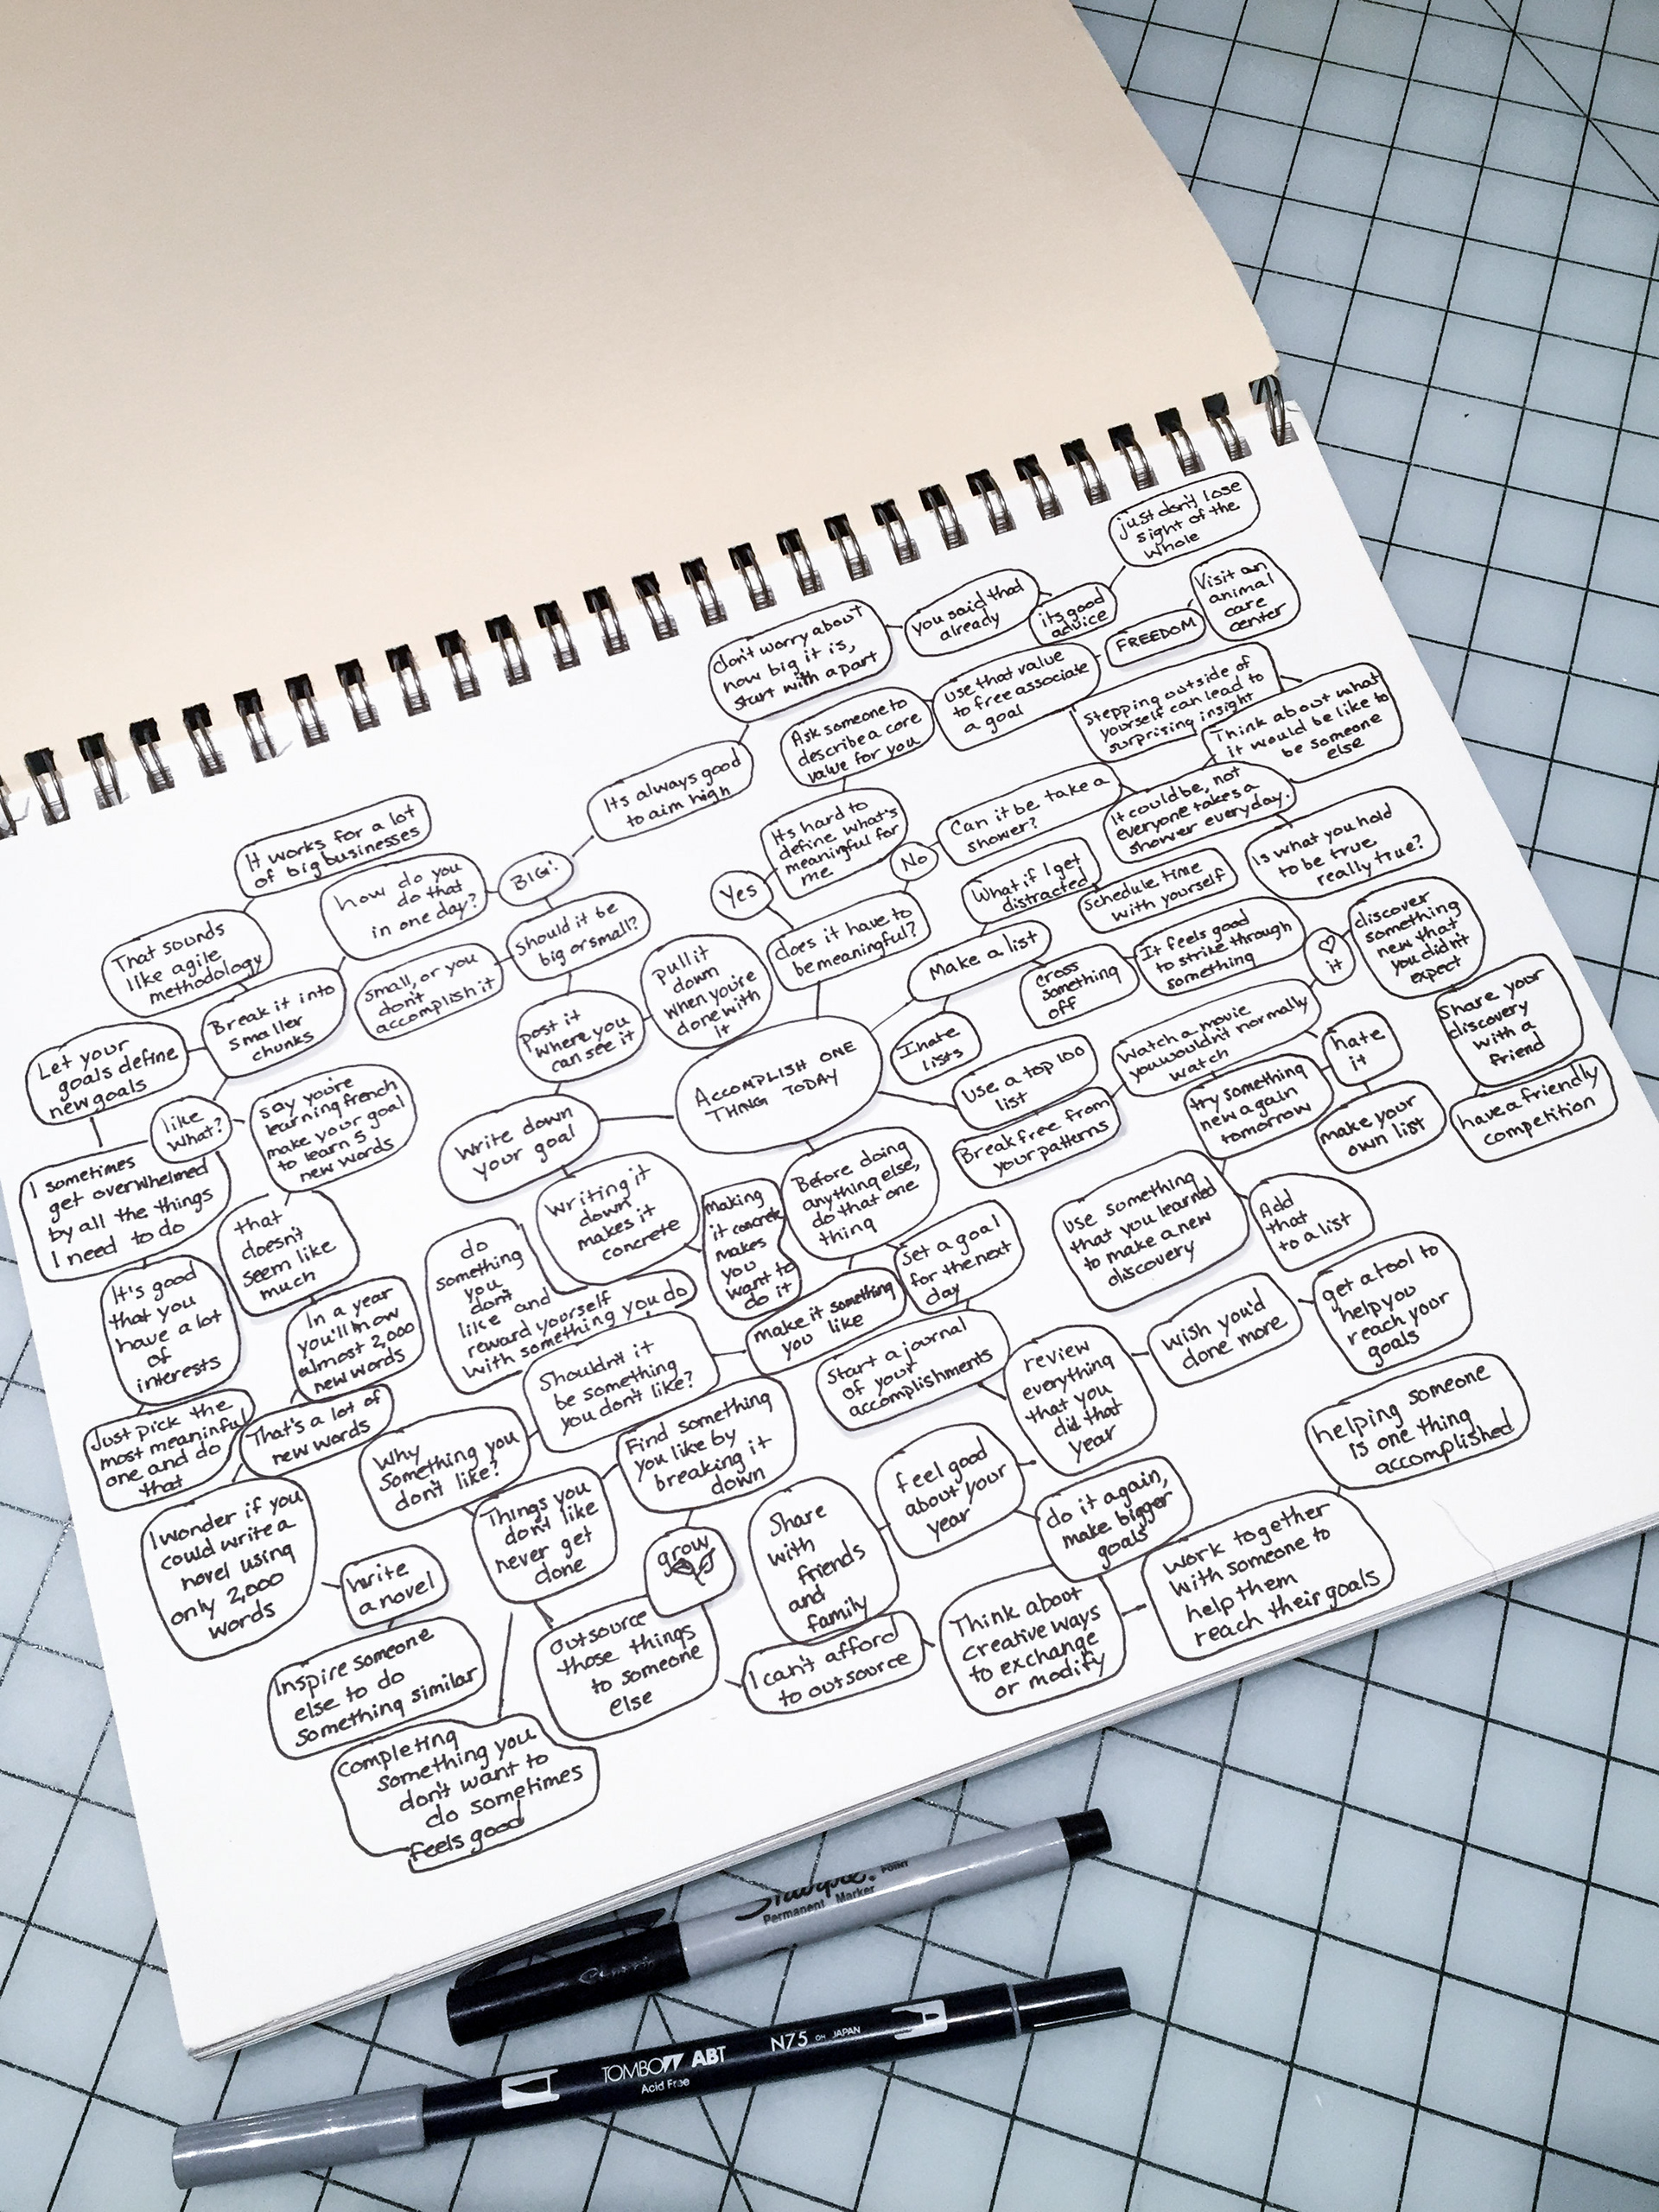 just don't lose
sight of the
whole
Visit an
animal
care
center
you said that
already
its good
advice
FREEDOM
don't worry about
how big it is,
start with a part
use that value
to free associate
a goal
Ask someone to
describe a core
value for you
Stepping outside of
yourself can lead to
surprising insight
Think about what
it would be like to
be someone
else
Its always good
to aim high
It works for a lot
of big businesses
how do you
do that
in one day?
BIG!
Its hard to
define what's
meaningful for
me
Yes
No
Can it be take a
shower?
It could be, not
everyone takes a
shower everyday.
Is what you hold
to be true
really true?
What if I get
distracted
Schedule time
with yourself
That sounds
like agile
methodology
small, or you
don't
accomplish it
Should it be
big or small?
does it have to
be meaningful?
Make a list
cross
something
off
It feels good
to strike through
something
♡
it
discover
something
new that
you didn't
expect
Let your
goals define
new goals
Break it into
smaller
chunks
post it
where you
can see it
pull it
down
when you're
done with
it
ACCOMPLISH ONE
THING TODAY
I hate
lists
Use a top 100
list
Watch a movie
you wouldn't normally
watch
hate
it
Share your
discovery
with a
friend
like
what?
say you're
learning french
make your goal
to learn 5
new words
Write down
your goal
Break free from
your patterns
try something
new again
tomorrow
make your
own list
have a friendly
competition
I sometimes
get overwhelmed
by all the things
I need to do
that
doesn't
seem like
much
Writing it
down
makes it
concrete
Making
it concrete
makes
you
want to
do it
Before doing
anything else,
do that one
thing
Set a goal
for the next
day
Use something
that you learned
to make a new
discovery
Add
that
to a list
It's good
that you
have a lot
of
interests
In a year
you'll know
almost 2,000
new words
do
something
you
don't
like and
reward yourself
with something you do
make it something
you like
Start a journal
of your
accomplishments
review
everything
that you
did that
year
wish you'd
done more
get a tool to
help you
reach your
goals
Just pick the
most meaninful
one and do
that
That's a lot of
new words
Why
something you
don't like?
Shouldn't it
be something
you don't like?
Find something
you like by
breaking it
down
feel good
about your
year
helping someone
is one thing
accomplished
I wonder if you
could write a
novel using
only 2,000
words
write
a novel
Things you
don't like
never get
done
grow
Share
with
friends
and
family
do it again,
make bigger
goals
work together
with someone to
help them
reach their goals
Inspire someone
else to do
something similar
outsource
those things
to someone
else
I can't afford
to outsource
Think about
creative ways
to exchange
or modify
Completing
something you
don't want to
do sometimes
feels good
Sharpie.
POINT
Permanent Marker
TOMBOW ABT N75 JAPAN
Acid Free